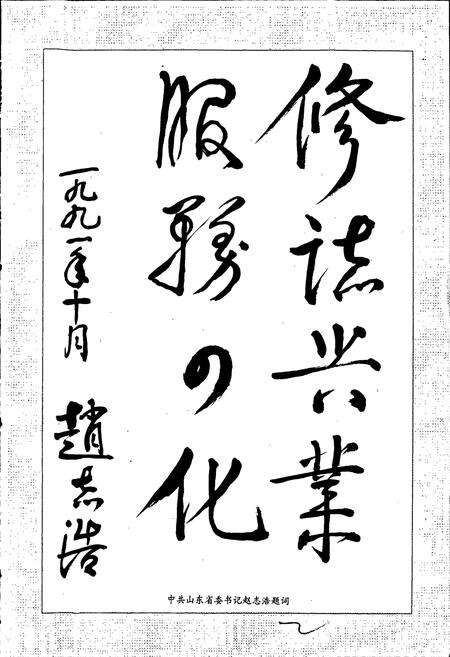 修誌兴業
服務四化
一九九一年十月
趙志浩
中共山东省委书记赵志浩题词